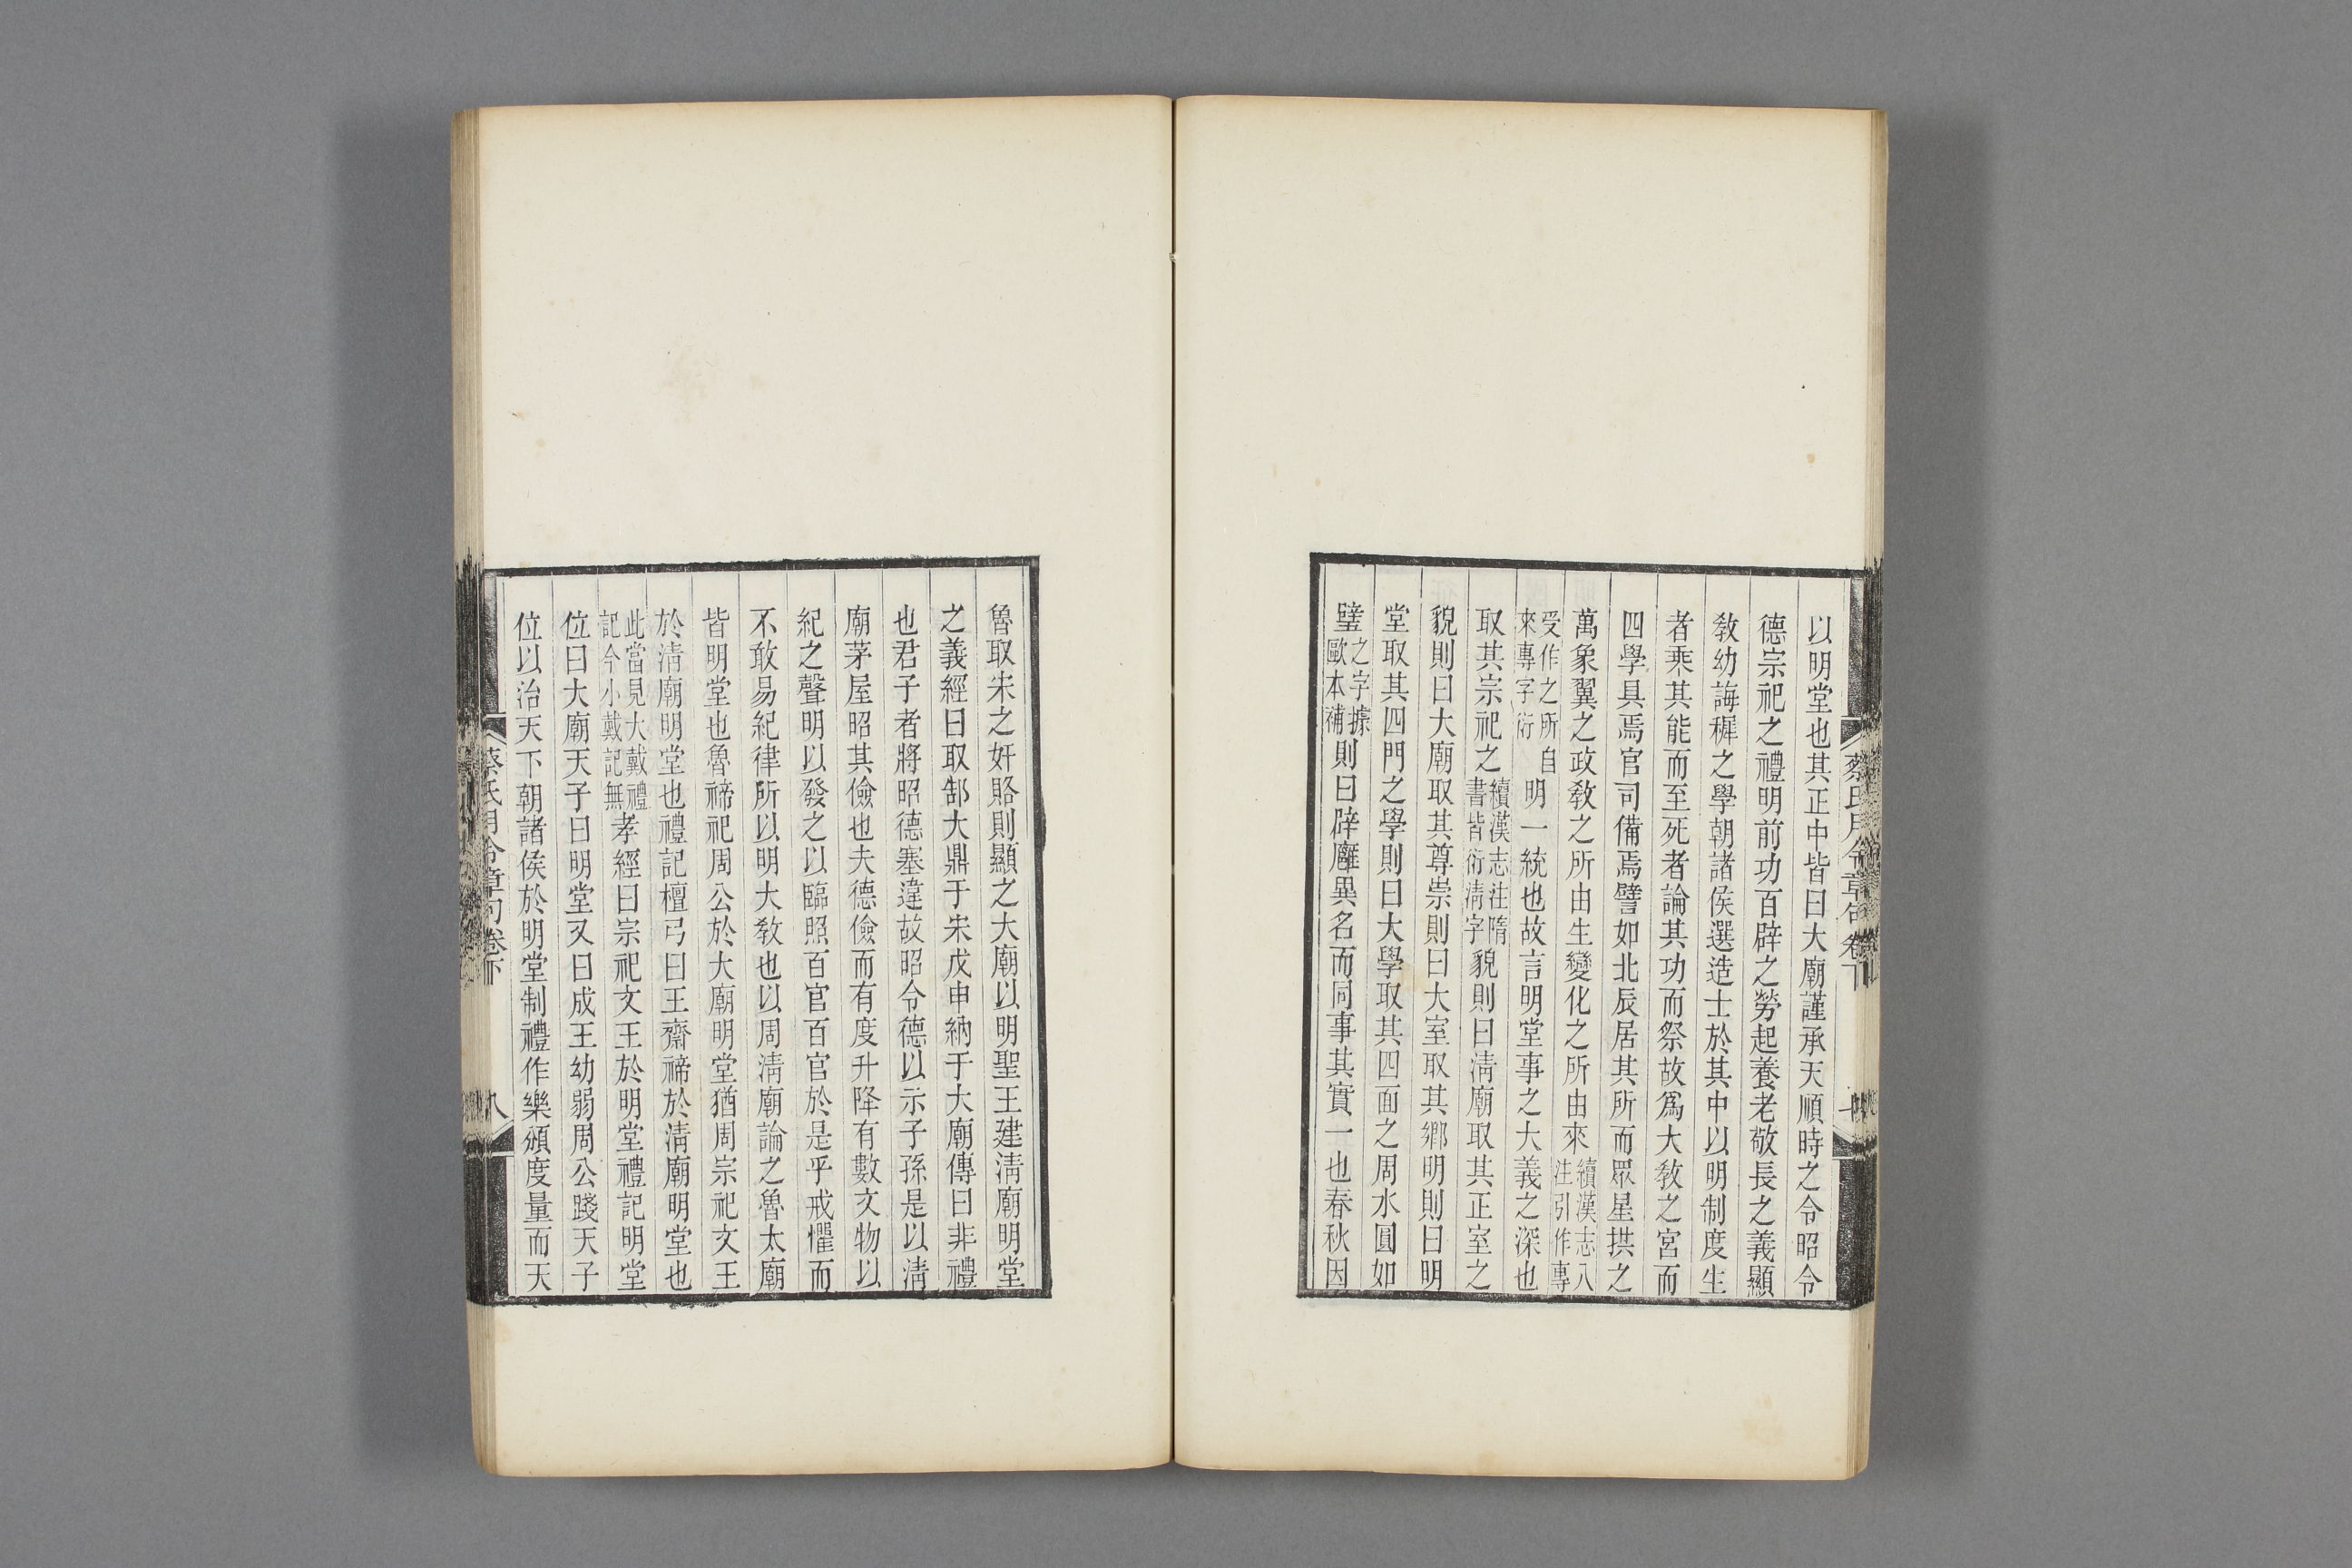 以明堂也其正中皆曰大廟謹承天順時之令昭令
德宗祀之禮明前功百辟之勞起養老敬長之義顯
敎幼誨稺之學朝諸侯選造士於其中以明制度生
者乘其能而至死者論其功而祭故爲大敎之宮而
四學具焉官司備焉譬如北辰居其所而眾星拱之
萬象翼之政敎之所由生變化之所由來續漢志八注引作專
受作之所自來專字衍明一統也故言明堂事之大義之深也
取其宗祀之續漢志注隋書皆衍淸字貌則曰淸廟取其正室之
貌則曰大廟取其尊崇則曰大室取其鄉明則曰明
堂取其四門之學則曰大學取其四面之周水圓如
璧之字據歐本補則曰辟廱異名而同事其實一也春秋因
蔡氏月令章句卷下
魯取宋之奸賂則顯之大廟以明聖王建淸廟明堂
之義經曰取郜大鼎于宋戊申納于大廟傳曰非禮
也君子者將昭德塞違故昭令德以示子孫是以淸
廟茅屋昭其儉也夫德儉而有度升降有數文物以
紀之聲明以發之以臨照百官百官於是乎戒懼而
不敢易紀律所以明大敎也以周淸廟論之魯太廟
皆明堂也魯禘祀周公於大廟明堂猶周宗祀文王
於淸廟明堂也禮記檀弓曰王齋禘於淸廟明堂也
此當見大戴禮記今小戴記無孝經曰宗祀文王於明堂禮記明堂
位曰大廟天子曰明堂又曰成王幼弱周公踐天子
位以治天下朝諸侯於明堂制禮作樂頒度量而天
蔡氏月令章句卷下
八